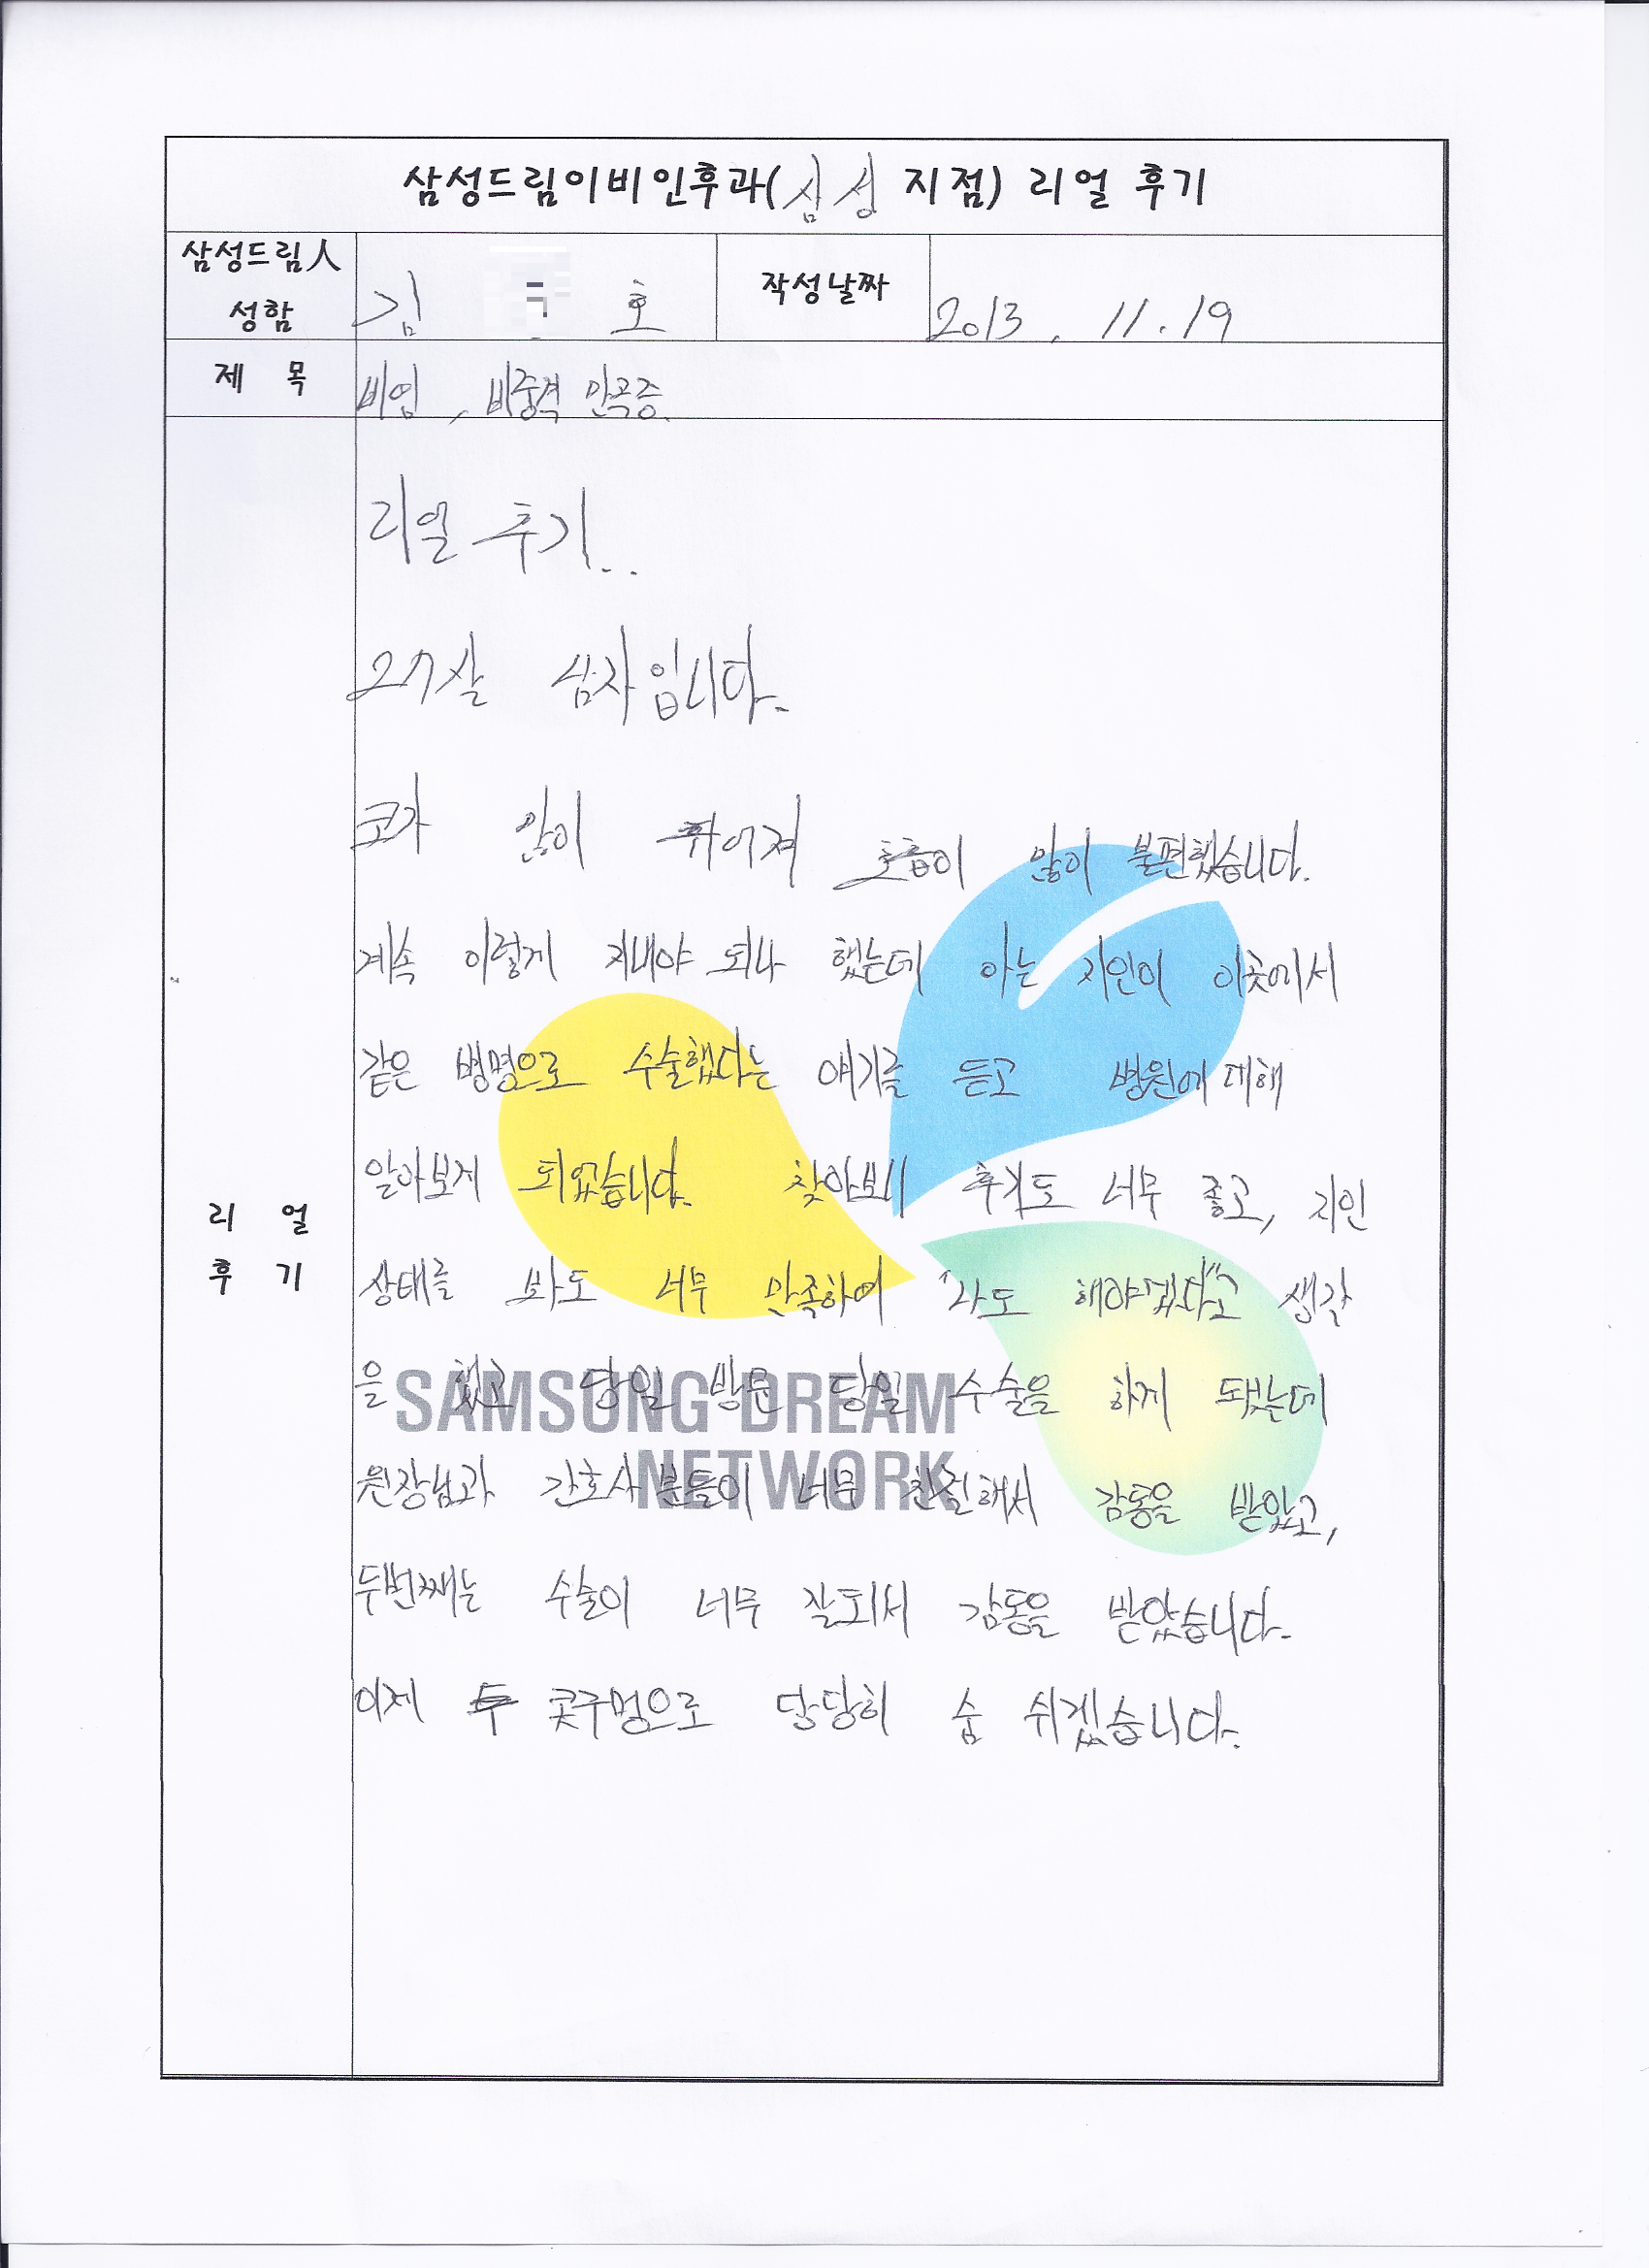 삼성드림이비인후과(삼성 지점) 리얼 후기
삼성드림人 성함 김 호 작성날짜 2013. 11. 19
제 목 비염, 비중격 만곡증.
리얼 후기..
27살 남자입니다.
코가 많이 휘어져 호흡이 많이 불편했습니다.
계속 이렇게 지내야 되나 했는데 아는 지인이 이곳에서
같은 병명으로 수술했다는 얘기를 듣고 병원에 대해
알아보게 되었습니다. 찾아보니 후기도 너무 좋고, 지인
리 얼 후 기
상태를 봐도 너무 만족하여 "나도 해야겠다"고 생각
을 했고 당일 방문 당일 수술을 하게 됐는데
원장님과 간호사분들이 너무 친절해서 감동을 받았고,
두번째는 수술이 너무 잘되서 감동을 받았습니다.
이제 두 콧구멍으로 당당히 숨 쉬겠습니다.
SAMSUNG DREAM
NETWORK